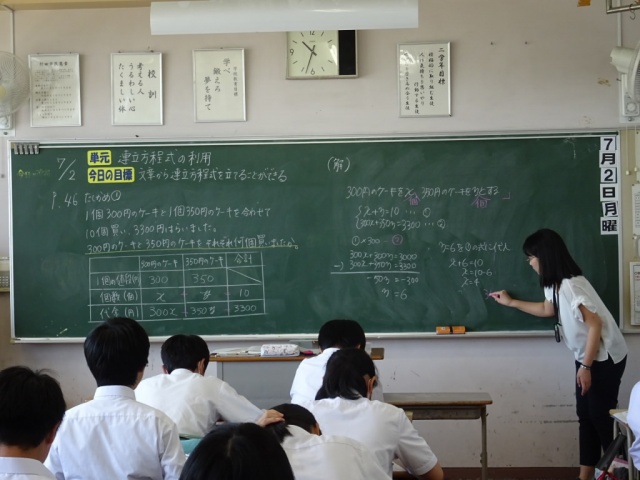 校訓
考える人
うるわしい心
たくましい体
学べ
鍛えろ
夢を持て
二学年目標
7/2
単元 連立方程式の利用
今日の目標 文章から連立方程式を立てることができる
P.46 たしかめ①
1個300円のケーキと1個350円のケーキを合わせて
10個買い、3300円はらいました。
300円のケーキと350円のケーキをそれぞれ何個買いましたか。
300円のケーキ 350円のケーキ 合計
1個の値段(円) 300 350
個数(個) x y 10
代金(円) 300x 350y 3300
(解)
300円のケーキをx個、350円のケーキをy個とする
x+y=10 … ①
300x+350y=3300 … ②
①×300 - ②
300x+300y=3000
-) 300x+350y=3300
-50y=-300
y=6
y=6を①の式に代入
x+6=10
x=10-6
x=4
7月2日月曜